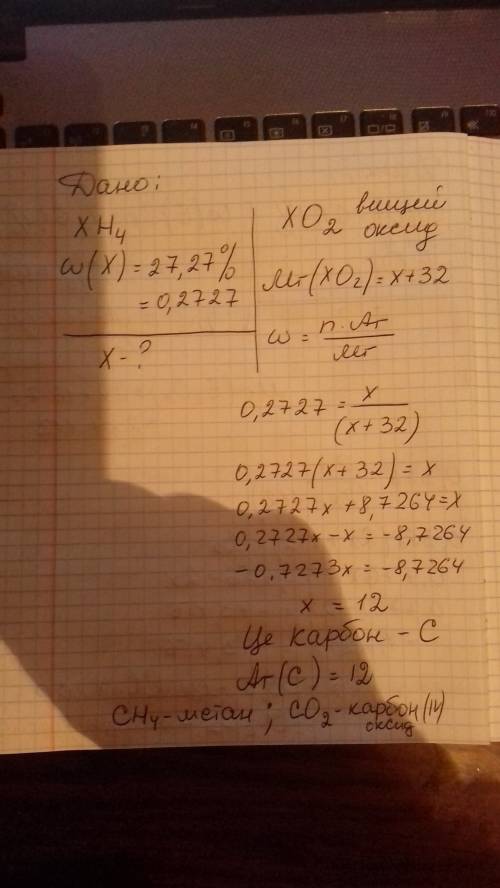 Дано:
XH₄
ω(X) = 27,27%
= 0,2727
X - ?
XO₂ вищей
оксид
Mr(XO₂) = x+32
ω = n·Ar / Mr
0,2727 = x / (x+32)
0,2727(x+32) = x
0,2727x + 8,7264 = x
0,2727x - x = -8,7264
-0,7273x = -8,7264
x = 12
Це карбон - C
Ar(C) = 12
CH₄-метан; CO₂-карбон(IV)
оксид